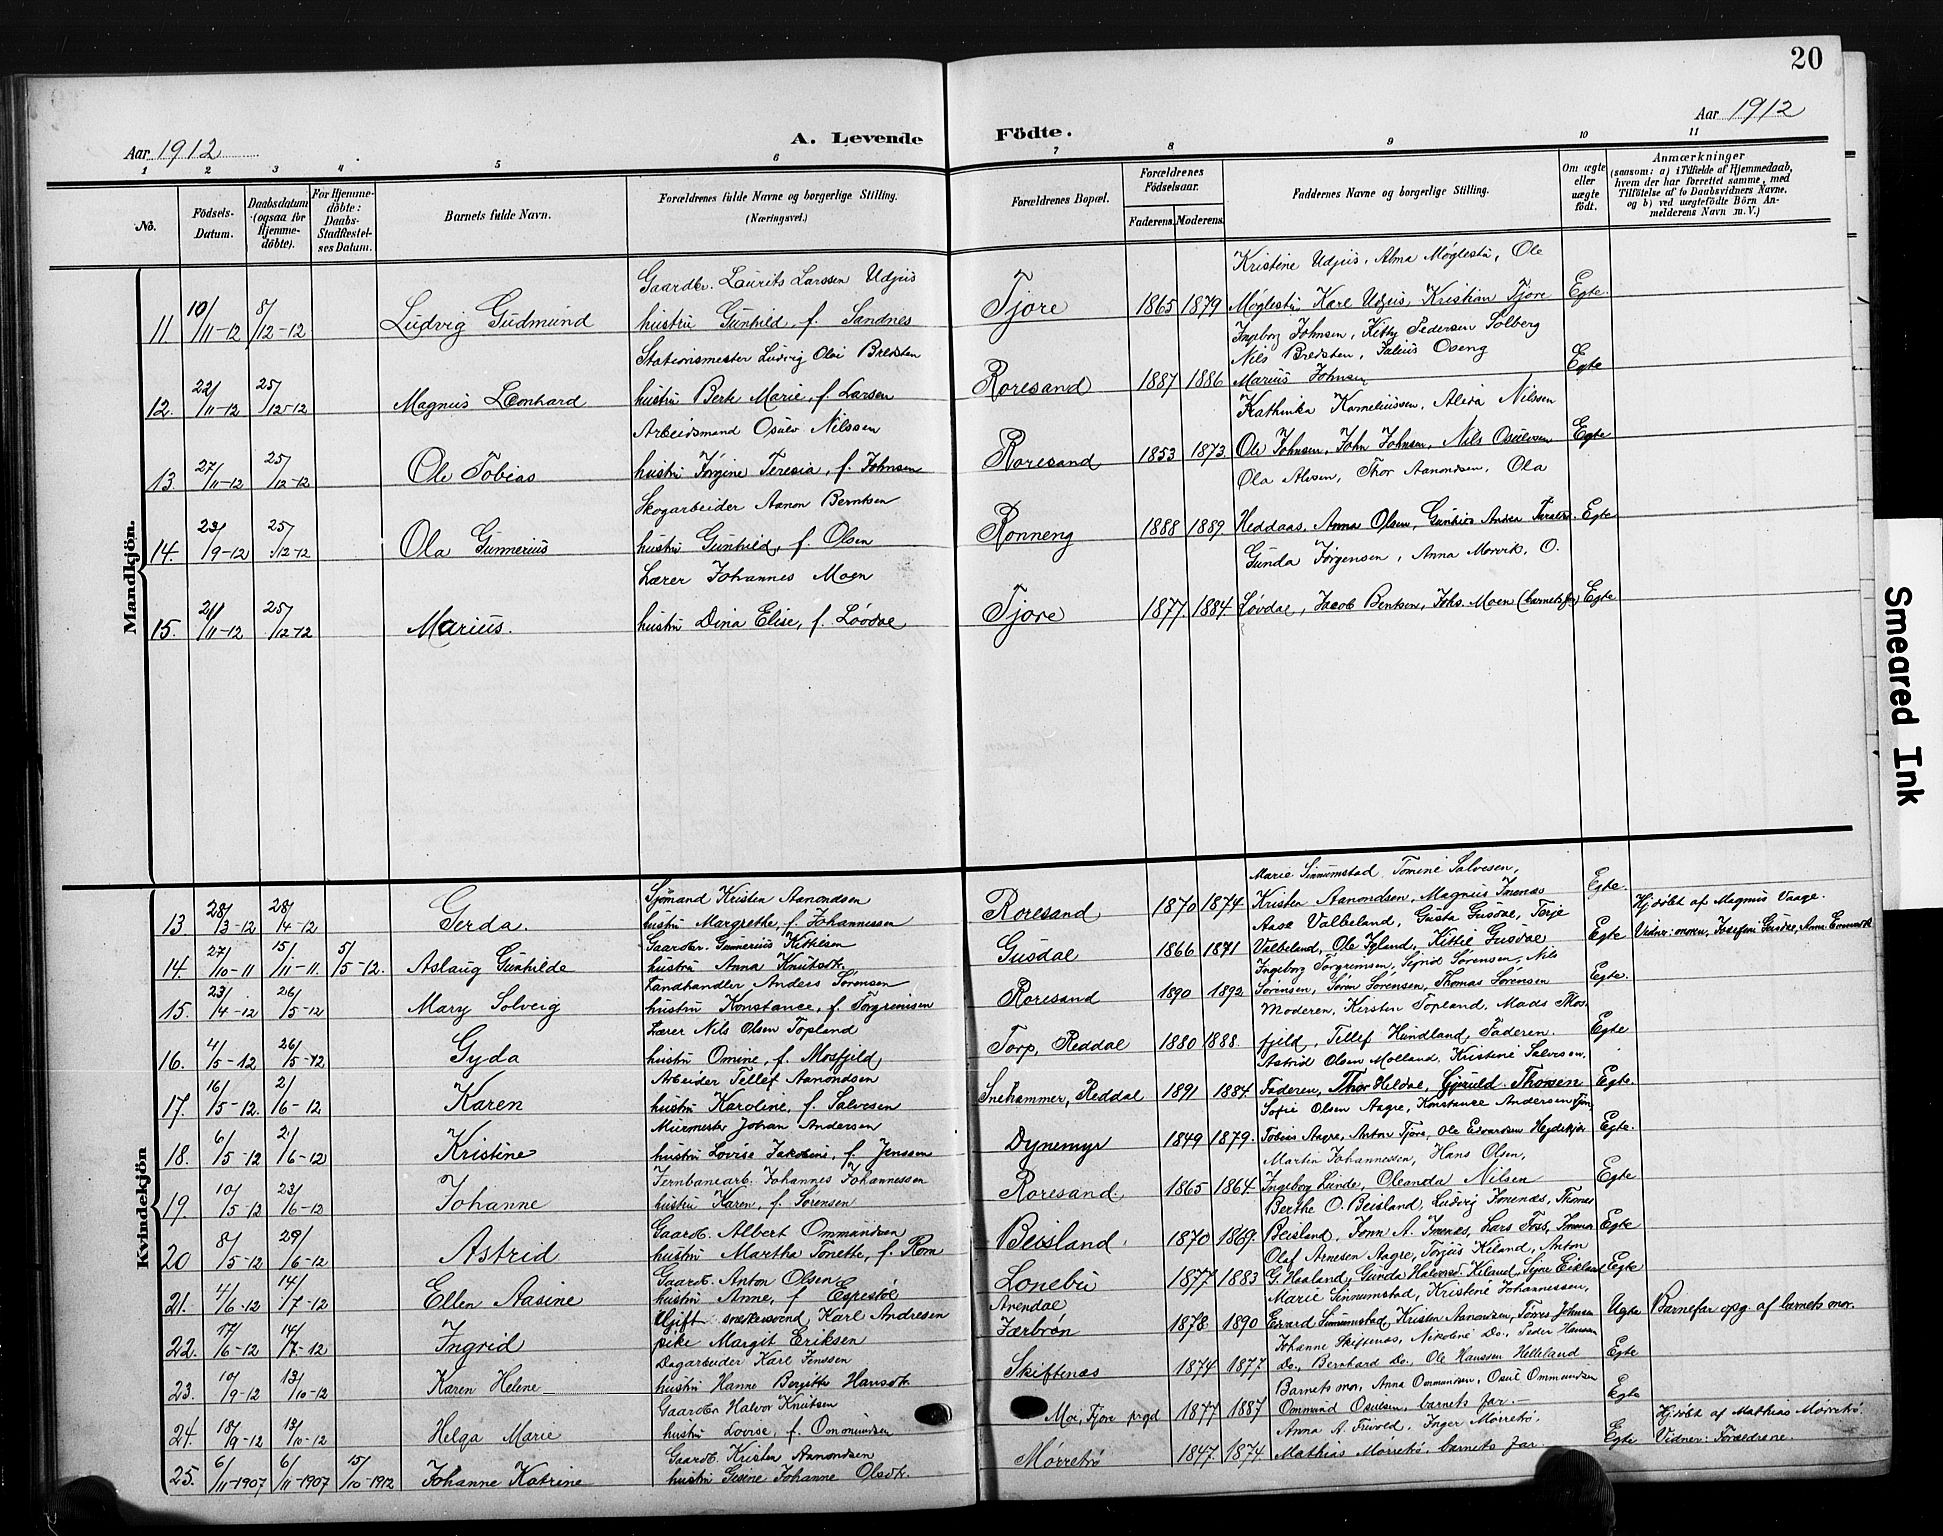 20
Aar 1912
A. Levende Födte.
Aar 1912
1 2 3 4 5 6 7 8 9 10 11
No.
Födsels-Datum.
Daabsdatum (ogsaa for Hjemme-döbte).
For Hjemme-döbte: Daabs-Stadfestel-ses Datum.
Barnets fulde Navn.
Forældrenes fulde Navne og borgerlige Stilling. (Næringsvei.)
Forældrenes Bopæl.
Forældrenes Födselsaar.
Faderens. Moderens.
Faddernes Navne og borgerlige Stilling.
Om ægte eller uægte födt.
Anmærkninger
(saasom: a) i Tilfælde af Hjemmedaab, hvem der har forrettet samme, med Tilföielse af to Daabsvidners Navne, og b) ved uægtefödte Börn An-melderens Navn m. V.)
Mandkjön.
Gaardbr. Laurits Larssen Udjus Kristine Udjus, Alma Møglestu, Ole
11 10/11-12 8/12-12 Ludvig Gudmund hustru Gunhild, f. Sandnes Tjore 1865 1879 Møglestu, Karl Udjus, Kristian Tjore Egte.
Stationsmester Ludvig Olai Bredsten Ingeborg Johnsen, Kitty Pedersen Solberg
Nils Bredsten, Julius Oseng
12. 22/11-12 25/12-12 Magnus Leonhard hustru Berte Marie, f. Larsen Roresand 1887 1886 Marius Johnsen Egte
Arbeidsmand Osulv Nilssen Kathinka Korneliussen, Alida Nilssen
13. 27/11-12 25/12-12 Ole Tobias hustru Jørgine Teresia, f. Johnsen Roresand 1853 1873 Ole Johnsen, John Johnsen, Nils Osulvsen Egte
Skogarbeider Aanon Berntsen Ola Alisen, Thor Aanondsen, Ola
14. 23/9-12 25/12-12 Ola Gunnerius hustru Gunhild, f. Olsen Ronneng 1888 1889. Heddaas, Anna Olsen, Andrea Egte
Lærer Johannes Moen Gunda Jørgensen, Anna Morvik, O.
15. 21/11-12 25/12-12 Marius. hustru Dina Elise, f. Lövdal Tjore 1877. 1884 Løvdal, Jacob Bentsen, Johs. Moen (barnets far) Egte
Kvindekjön
Sjømand Kristen Aanondsen Marie Sinnumstad, Tomine Salvesen,
13. 28/3-12 28/4-12 Gerda. hustru Margrethe, f. Johannessen Roresand 1870 1874 Kristen Aanondsen, Magnus Imenæs Egte.
Gaardbr. Gunnerius Kittilsen Aase Valbeland, Gusta Gusdal, Terje Hjdøbt af Magnus Vaage.
14. 27/10-11 15/11-11. 5/5-12. Aslaug Gunhilde hustru Anna Knutsdtr. Gusdal 1866 1871 Valbeland, Ole Igland, Kittil Gusdal Egte Vidner: moren, Josefine Gusdal, Anna
Landhandler Anders Sørensen Ingeborg Torgrimsen, Sigrid Sørensen, Nils
15. 23/4-12 26/5-12 Mary Solveig hustru Konstance, f. Torgrimsen Roresand 1890 1892 Sørensen, Søren Sørensen, Thomas Sørensen Egte.
Lærer Nils Olsen Topland Moderen, Kirsten Topland, Mads Mos
16. 4/5-12 26/5-12 Gyda hustru Omine, f. Mosfjeld, Torp, Reddal 1880 1888. fjeld, Tellef Hundland, Faderen. Egte
Arbeider Tellef Aanondsen Astrid Olsen Molland, Kristine Salvesen,
17. 16/5-12. 2/6-12 Karen hustru Karoline, f. Salvesen Snehammer, Reddal 1891 1884 Faderen, Thor Heldal, Gjeruld Thorsen Egte.
Murmester Johan Andersen Sofie Olsen Aagre, Konstance Andersen
18. 6/5-12 2/6-12 Kristine hustru Lovise Jakobine, f. Jenssen Dynemyr 1849 1879. Tobias Aagre, Anton Tjore, Ole Edvardsen Egte.
Jernbanearb. Johannes Johannessen Martin Johannessen, Hans Olsen,
19. 10/5-12 23/6-12 Johanne hustru Karen, f. Sørensen Roresand. 1865 1864 Ingeborg Lunde, Oleanda Nilsen Egte
Gaardbr. Albert Ommundsen Berthe O. Beisland, Ludvig Imenæs, Thomas
20 8/5-12 29/6-12 Astrid hustru Martha Tonette, f. Rom Beisland. 1870 1869. Beisland, Tom A. Imenæs, Lars Foss, Egte
Gaardb. Anton Olsen Olaf Arnesen Aagre, Torjus Kiland, Anton
21. 4/6-12 14/7-12 Ellen Aasine hustru Anne, f. Espestöl Lonebu 1877 1883 G. Haaland, Gunda Halvorsd. Kiland, Signe Eikland Egte
Ugift snekkersvend, Karl Andresen Arendal Marie Sinnumstad, Kristine Johannessen,
22. 17/6-12 14/7-12 Ingrid pike Margit Eriksen Færbrön 1878. 1890 Sinnumstad, Kristen Aanondsen, Johnsen Ugte Barnefar opg. af barnets mor.
Dagarbeider Karl Jenssen Johanne Skiftenæs, Nikoline Do., Peder Hansen
23. 10/9-12 13/10-12 Karen Helene hustru Hanne Bergitte Hansdtr. Skiftenæs 1874 1877 Do., Bernhard Do., Ole Hanssen Helleland Egte
Gaardbr. Halvor Knutsen Barnets mor, Anna Ommundsen, Osul Ommundsen
24. 18/9-12 13/10-12 Helga Marie hustru Lovise, f. Ommundsen Moi, Fjære prgd 1877 1887 Ommund Osulsen, barnets far. Egte
Gaardb. Kristen Aanondsen Anna A. Frivold, Inger Mørretrö, Hjdøbt af Mathias Mørretrö.
25. 6/11-1907 6/11-1907 15/10-1912 Johanne Katrine hustru Gesine Johanne Olsdtr. Mørretrö 1847. 1874. Mathias Mørretrö, barnets far. Egte Vidner: Foreldrene.
Smeared Ink